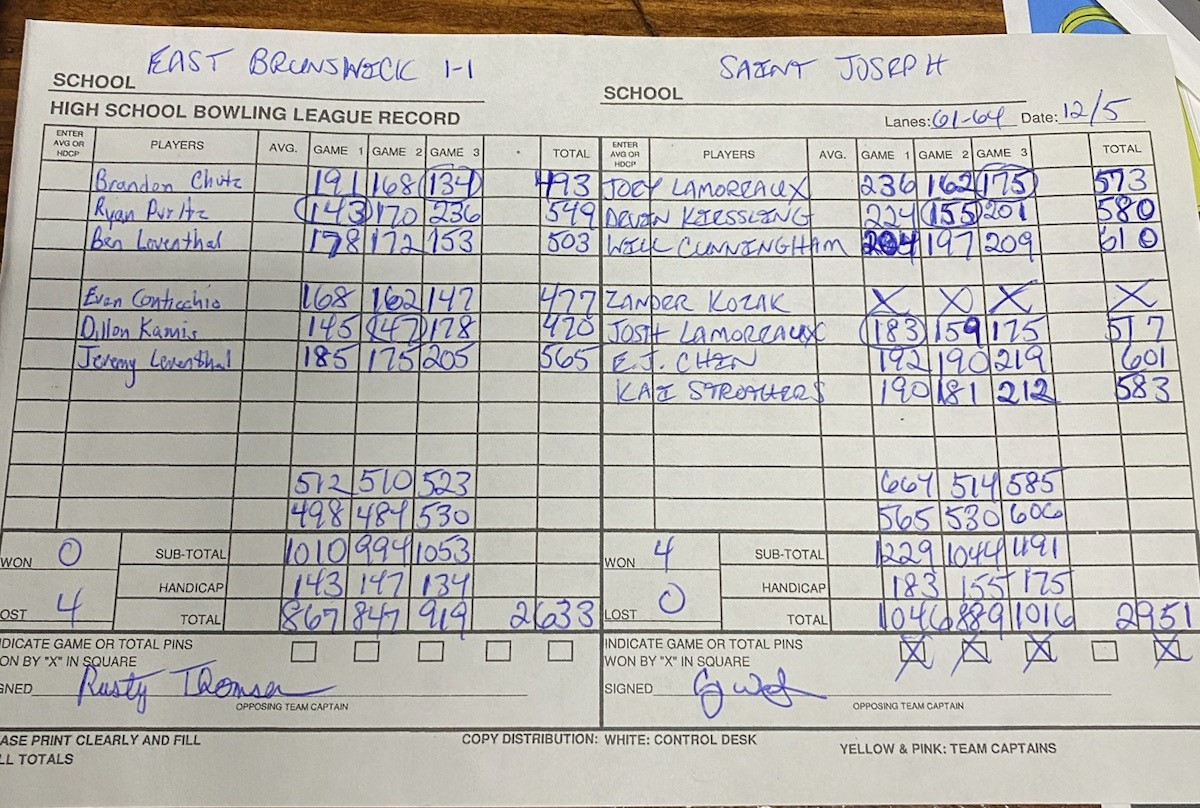 EAST BRUNSWICK 1-1 SAINT JOSEPH
SCHOOL SCHOOL
HIGH SCHOOL BOWLING LEAGUE RECORD Lanes: 61-64 Date: 12/5
ENTER AVG OR HDCP PLAYERS AVG. GAME 1 GAME 2 GAME 3 TOTAL ENTER AVG OR HDCP PLAYERS AVG. GAME 1 GAME 2 GAME 3 TOTAL
Brandon Chutz 191 168 134 493 JOEY LAMOREAUX 236 162 175 573
Ryan Puritz 143 170 236 549 DEVIN KIESSLING 224 155 201 580
Ben Loventhal 178 172 153 503 WILL CUNNINGHAM 204 197 209 610
Evan Conticchio 168 162 147 477 ZANDER KOZAK X X X X
Dillon Kamis 145 147 178 470 JOSH LAMOREAUX 183 159 175 517
Jeremy Leventhal 185 175 205 565 E.J. CHEN 192 190 219 601
KAI STROTHERS 190 181 212 583
512 510 523 664 514 585
498 484 530 565 530 606
WON 0 SUB-TOTAL 1010 994 1053 WON 4 SUB-TOTAL 1229 1044 1191
HANDICAP 143 147 134 HANDICAP 183 155 175
OST 4 TOTAL 867 847 919 2633 LOST 0 TOTAL 1046 889 1016 2951
NDICATE GAME OR TOTAL PINS INDICATE GAME OR TOTAL PINS
ON BY "X" IN SQUARE WON BY "X" IN SQUARE X X X X
GNED Rusty Thomsen SIGNED
OPPOSING TEAM CAPTAIN OPPOSING TEAM CAPTAIN
ASE PRINT CLEARLY AND FILL COPY DISTRIBUTION: WHITE: CONTROL DESK YELLOW & PINK: TEAM CAPTAINS
LL TOTALS